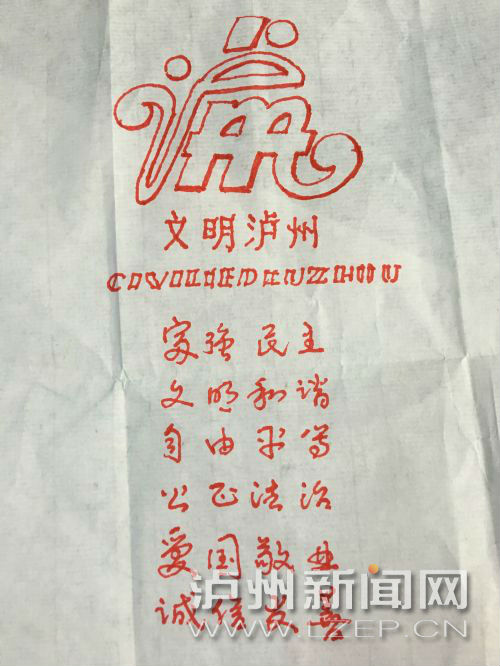 文明泸州
富强民主
文明和谐
自由平等
公正法治
爱国敬业
诚信友善
泸州新闻网
WWW.LZEP.CN